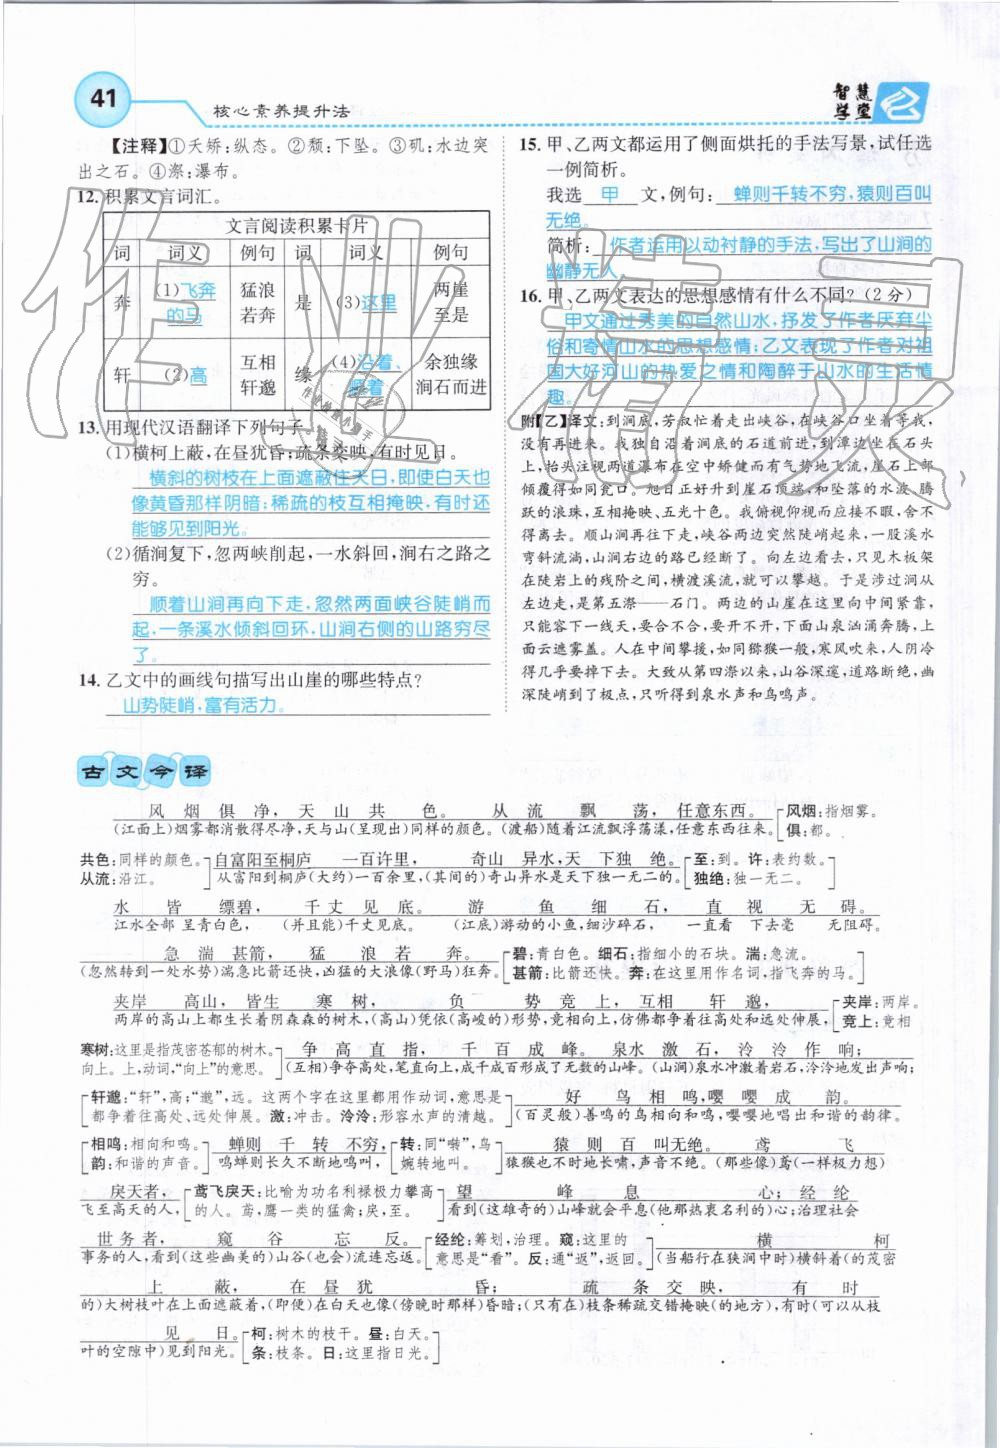 41
核心素养提升法
智慧
学堂
【注释】①夭矫:纵态。②颓:下坠。③矶:水边突
出之石。④漈:瀑布。
12. 积累文言词汇。
文言阅读积累卡片
词 词义 例句 词 词义 例句
奔 (1)飞奔的马 猛浪若奔 是 (3)这里 两崖至是
轩 (2)高 互相轩邈 缘 (4)沿着、顺着 余独缘涧石而进
13. 用现代汉语翻译下列句子。
(1)横柯上蔽,在昼犹昏;疏条交映,有时见日。
横斜的树枝在上面遮蔽住天日,即使白天也
像黄昏那样阴暗;稀疏的枝互相掩映,有时还
能够见到阳光。
(2)循涧复下,忽两峡削起,一水斜回,涧右之路之
穷。
顺着山涧再向下走,忽然两面峡谷陡峭而
起,一条溪水倾斜回环,山涧右侧的山路穷尽
了。
14. 乙文中的画线句描写出山崖的哪些特点?
山势陡峭,富有活力。
15. 甲、乙两文都运用了侧面烘托的手法写景,试任选
一例简析。
我选 甲 文,例句: 蝉则千转不穷,猿则百叫
无绝。
简析: 作者运用以动衬静的手法,写出了山涧的
幽静无人
16. 甲、乙两文表达的思想感情有什么不同?(2分)
甲文通过秀美的自然山水,抒发了作者厌弃尘
俗和寄情山水的思想感情;乙文表现了作者对祖
国大好河山的热爱之情和陶醉于山水的生活情
趣。
附【乙】译文:到涧底,芳叔忙着走出峡谷,在峡谷口坐着等我,
没有再进来。我独自沿着涧底的石道前进,到潭边坐在石头
上,抬头注视两道瀑布在空中矫健而有气势地飞流,崖石上部
倾覆得如同瓮口。旭日正好升到崖石顶端,和坠落的水波、腾
跃的浪珠,互相掩映、五光十色。我俯视仰视而应接不暇,舍不
得离去。顺山涧再往下走,峡谷两边突然陡峭起来,一股溪水
弯斜流淌,山涧右边的路已经断了。向左边看去,只见木板架
在陡岩上的残阶之间,横渡溪流,就可以攀越。于是涉过涧从
左边走,是第五漈——石门。两边的山崖在这里向中间紧靠,
只能容下一线天,要合不合,要开不开,下面山泉汹涌奔腾,上
面云遮雾盖。人在中间攀援,如同猕猴一般,寒风吹来,人阴冷
得几乎要掉下去。大致从第四漈以来,山谷深邃,道路断绝,幽
深陡峭到了极点,只听得到泉水声和鸟鸣声。
古文今译
风烟俱净,天山共色。从流飘荡,任意东西。 风烟:指烟雾。
(江面上)烟雾都消散得尽净,天与山(呈现出)同样的颜色。(渡船)随着江流飘浮荡漾,任意东西往来。 俱:都。
共色:同样的颜色。 自富阳至桐庐一百许里,奇山异水,天下独绝。 至:到。许:表约数。
从流:沿江。 从富阳到桐庐(大约)一百余里,(其间的)奇山异水是天下独一无二的。 独绝:独一无二。
水皆缥碧,千丈见底。游鱼细石,直视无碍。
江水全部呈青白色,(并且能)千丈见底。(江底)游动的小鱼,细沙碎石,一直看下去毫无阻碍。
急湍甚箭,猛浪若奔。 碧:青白色。细石:指细小的石块。湍:急流。
(忽然转到一处水势)湍急比箭还快,凶猛的大浪像(野马)狂奔。 甚箭:比箭还快。奔:在这里用作名词,指飞奔的马。
夹岸高山,皆生寒树,负势竞上,互相轩邈, 夹岸:两岸。
两岸的高山上都生长着阴森森的树木,(高山)凭依(高峻的)形势,竞相向上,仿佛都争着往高处和远处伸展, 竞上:竞相
寒树:这里是指茂密苍郁的树木。 争高直指,千百成峰。泉水激石,泠泠作响;
向上。上,动词,“向上”的意思。 (互相)争夺高处,笔直向上,成千成百形成了无数的山峰。(山涧)泉水冲激着岩石,泠泠地发出声响;
轩邈:“轩”,高;“邈”,远。这两个字在这里都用作动词,意思是 好鸟相鸣,嘤嘤成韵。
都争着往高处、远处伸展。激:冲击。泠泠:形容水声的清越。 (百灵般)善鸣的鸟相向和鸣,嘤嘤地唱出和谐的韵律。
相鸣:相向和鸣。 蝉则千转不穷, 转:同“啭”,鸟 猿则百叫无绝。鸢飞
韵:和谐的声音。 鸣蝉则长久不断地鸣叫, 婉转地叫。 猿猴也不时地长啸,声音不绝。(那些像)鸢(一样极力想)
戾天者, 鸢飞戾天:比喻为功名利禄极力攀高 望峰息心;经纶
飞至高天的人, 的人。鸢,鹰一类的猛禽;戾,至。 看到(这雄奇的)山峰就会平息(他那热衷名利的)心;治理社会
世务者,窥谷忘反。 经纶:筹划,治理。窥:这里的 横柯
事务的人,看到(这些幽美的)山谷(也会)流连忘返。 意思是“看”。反:通“返”,返回。 (当船行在狭涧中时)横斜着(的茂密
上蔽,在昼犹昏;疏条交映,有时
的)大树枝叶在上面遮蔽着,(即便)在白天也像(傍晚时那样)昏暗;(只有在)枝条稀疏交错掩映(的地方),有时(可以从枝
见日。 柯:树木的枝干。昼:白天。
叶的空隙中)见到阳光。 条:枝条。日:这里指日光。
作业精灵